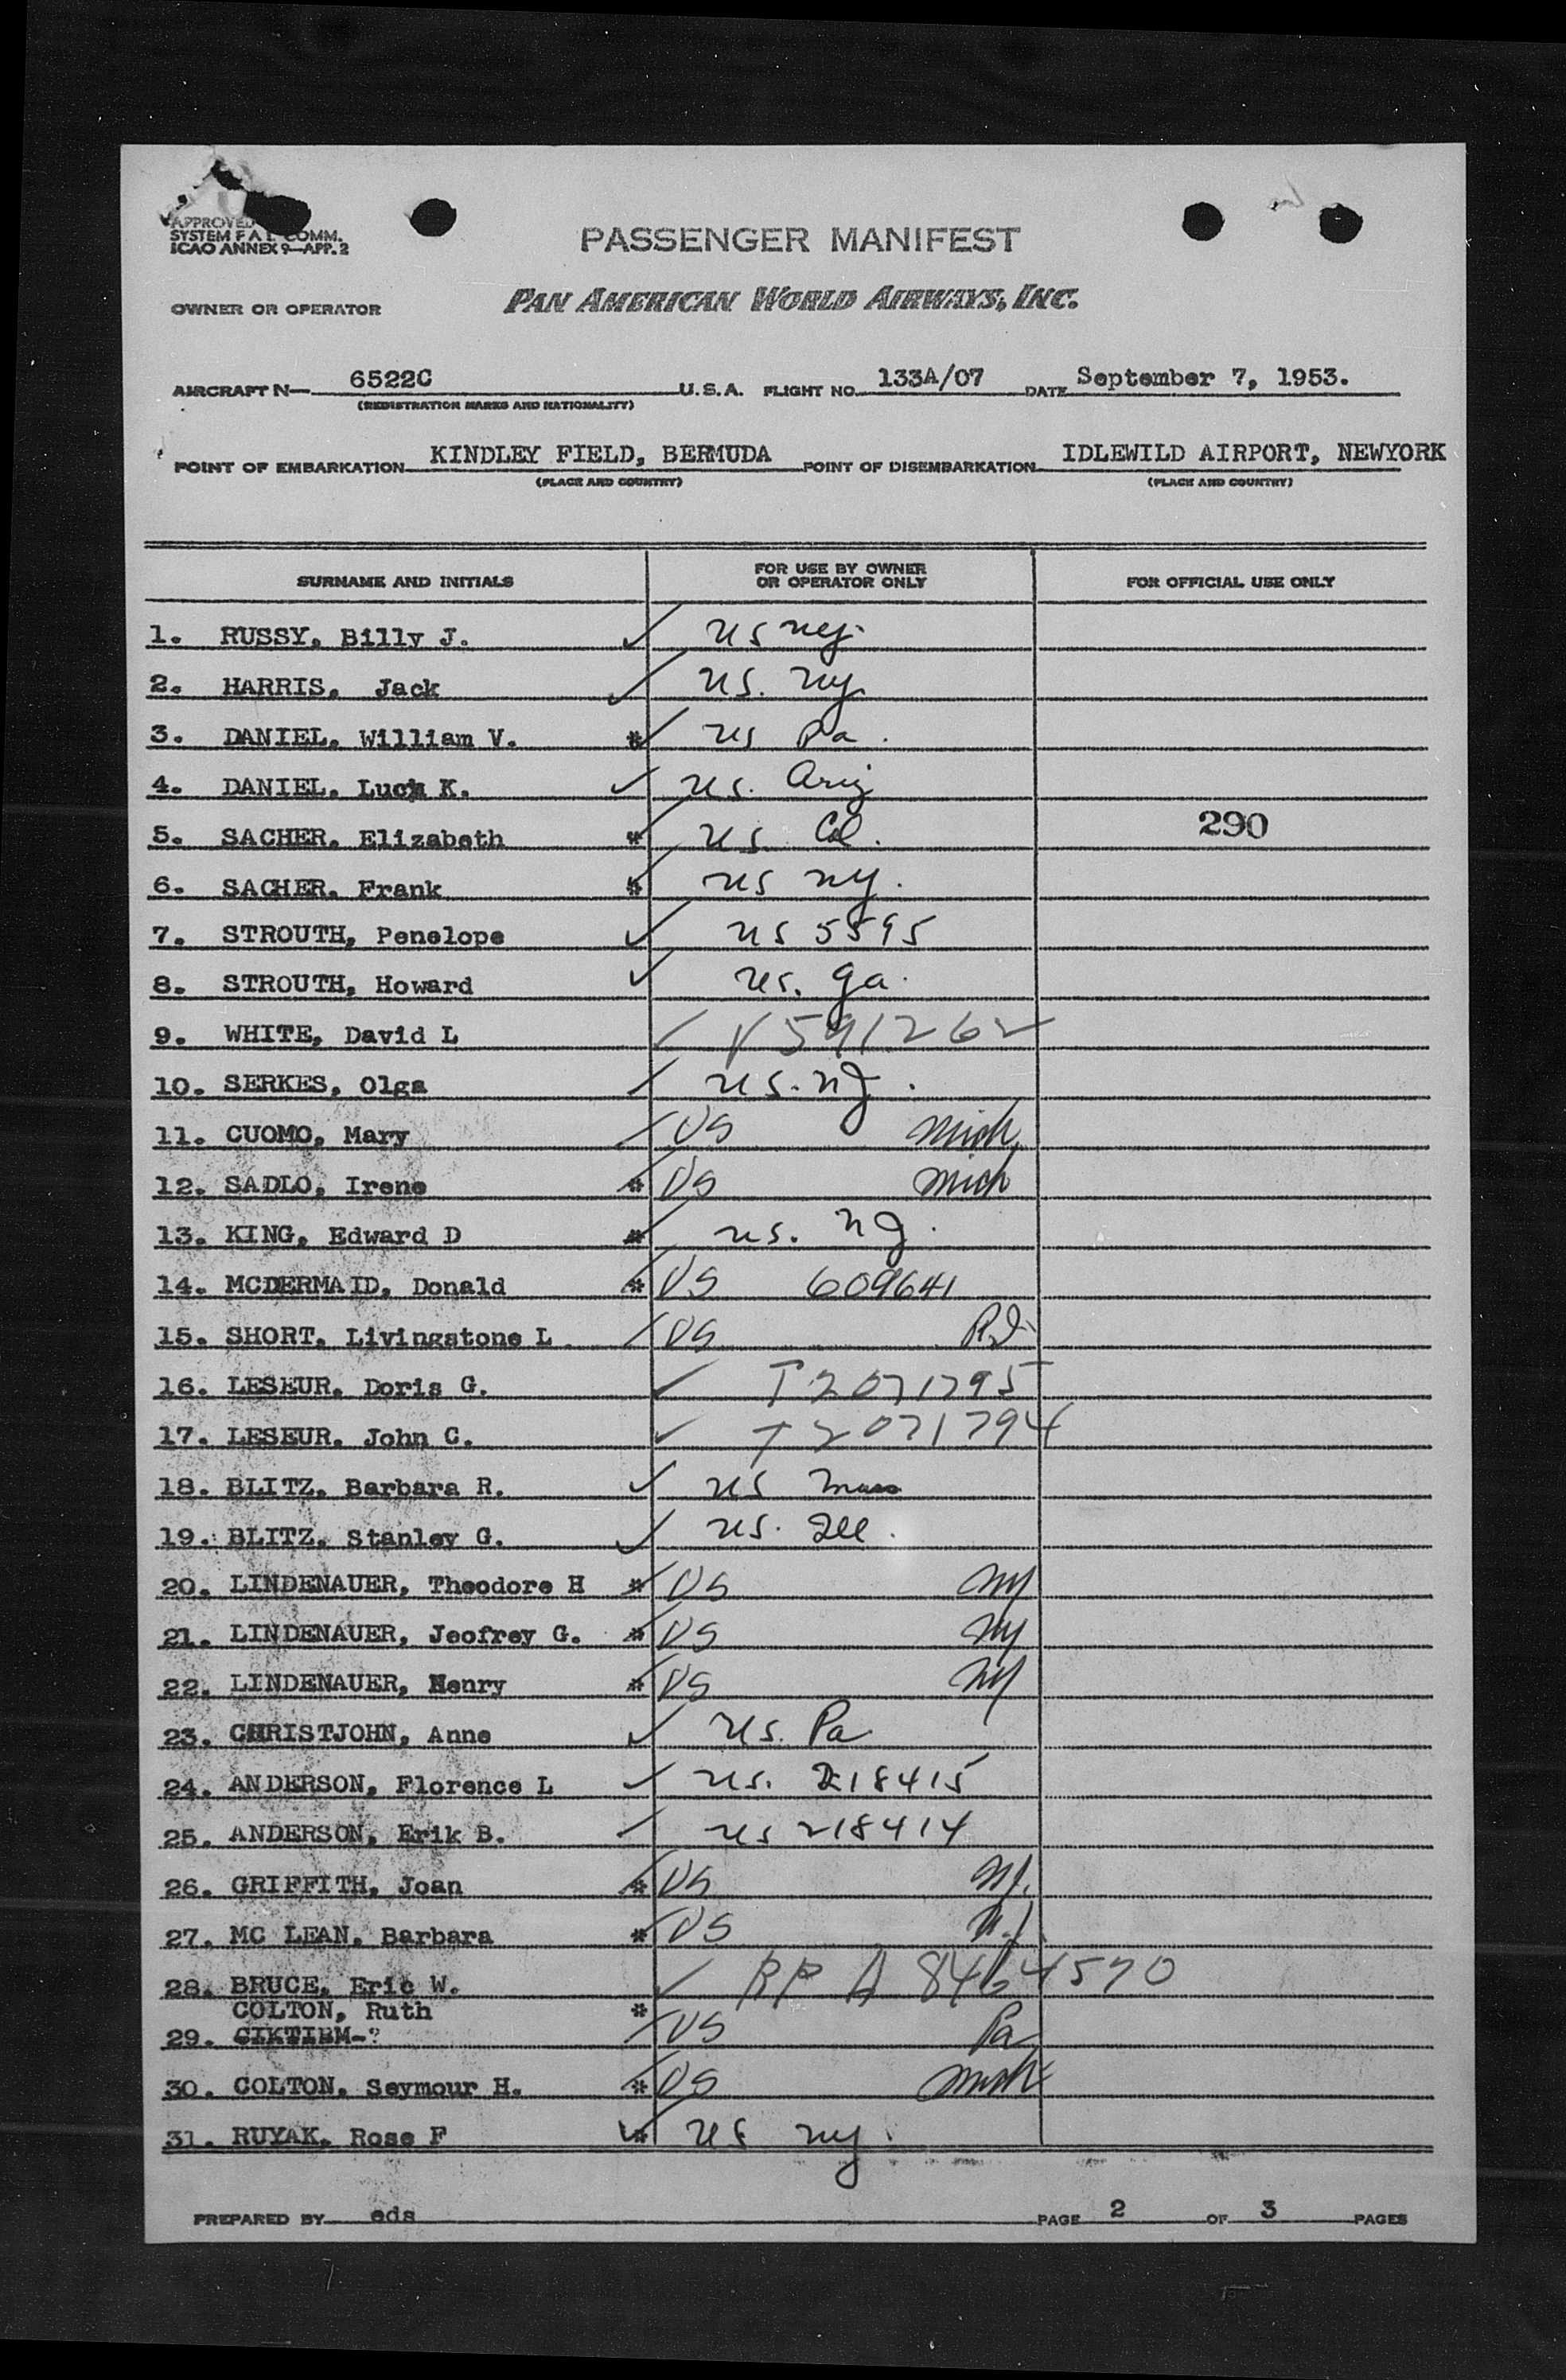 APPROVED
SYSTEM F A L COMM.
ICAO ANNEX 9—APP. 2
PASSENGER MANIFEST
OWNER OR OPERATOR PAN AMERICAN WORLD AIRWAYS, INC.
AIRCRAFT N— 6522C U.S.A. FLIGHT NO. 133A/07 DATE September 7, 1953.
(REGISTRATION MARKS AND NATIONALITY)
POINT OF EMBARKATION KINDLEY FIELD, BERMUDA POINT OF DISEMBARKATION IDLEWILD AIRPORT, NEWYORK
(PLACE AND COUNTRY) (PLACE AND COUNTRY)
SURNAME AND INITIALS FOR USE BY OWNER OR OPERATOR ONLY FOR OFFICIAL USE ONLY
1. RUSSY, Billy J. ✓ US ny.
2. HARRIS, Jack ✓ US. ny
3. DANIEL, William V. * ✓ US Pa.
4. DANIEL, Lucy K. ✓ US. Ariz
5. SACHER, Elizabeth * ✓ US. Col. 290
6. SACHER, Frank * ✓ US ny.
7. STROUTH, Penelope ✓ US 5595
8. STROUTH, Howard ✓ US. ga.
9. WHITE, David L ✓ V 591262
10. SERKES, Olga ✓ US. nJ.
11. CUOMO, Mary / US Mich
12. SADLO, Irene * / US Mich
13. KING, Edward D * / US. nJ.
14. MCDERMAID, Donald * / US 609641
15. SHORT, Livingstone L / US R.I.
16. LESEUR, Doris G. ✓ T2071795
17. LESEUR, John C. ✓ T2071794
18. BLITZ, Barbara R. ✓ US Mass
19. BLITZ, Stanley G. ✓ US. Ill.
20. LINDENAUER, Theodore H * / US NY
21. LINDENAUER, Jeofrey G. * / US NY
22. LINDENAUER, Henry * / US NY
23. CHRISTJOHN, Anne ✓ US. Pa
24. ANDERSON, Florence L ✓ US. 218415
25. ANDERSON, Erik B. / US 218414
26. GRIFFITH, Joan * / US NJ.
27. MC LEAN, Barbara * / US N.J.
28. BRUCE, Eric W. ✓ RP A 8464570
COLTON, Ruth *
29. CIKTIBM-? / US Pa
30. COLTON, Seymour H. * / US Mich
31. RUYAK, Rose F * ✓ US ny.
PREPARED BY eds PAGE 2 OF 3 PAGES